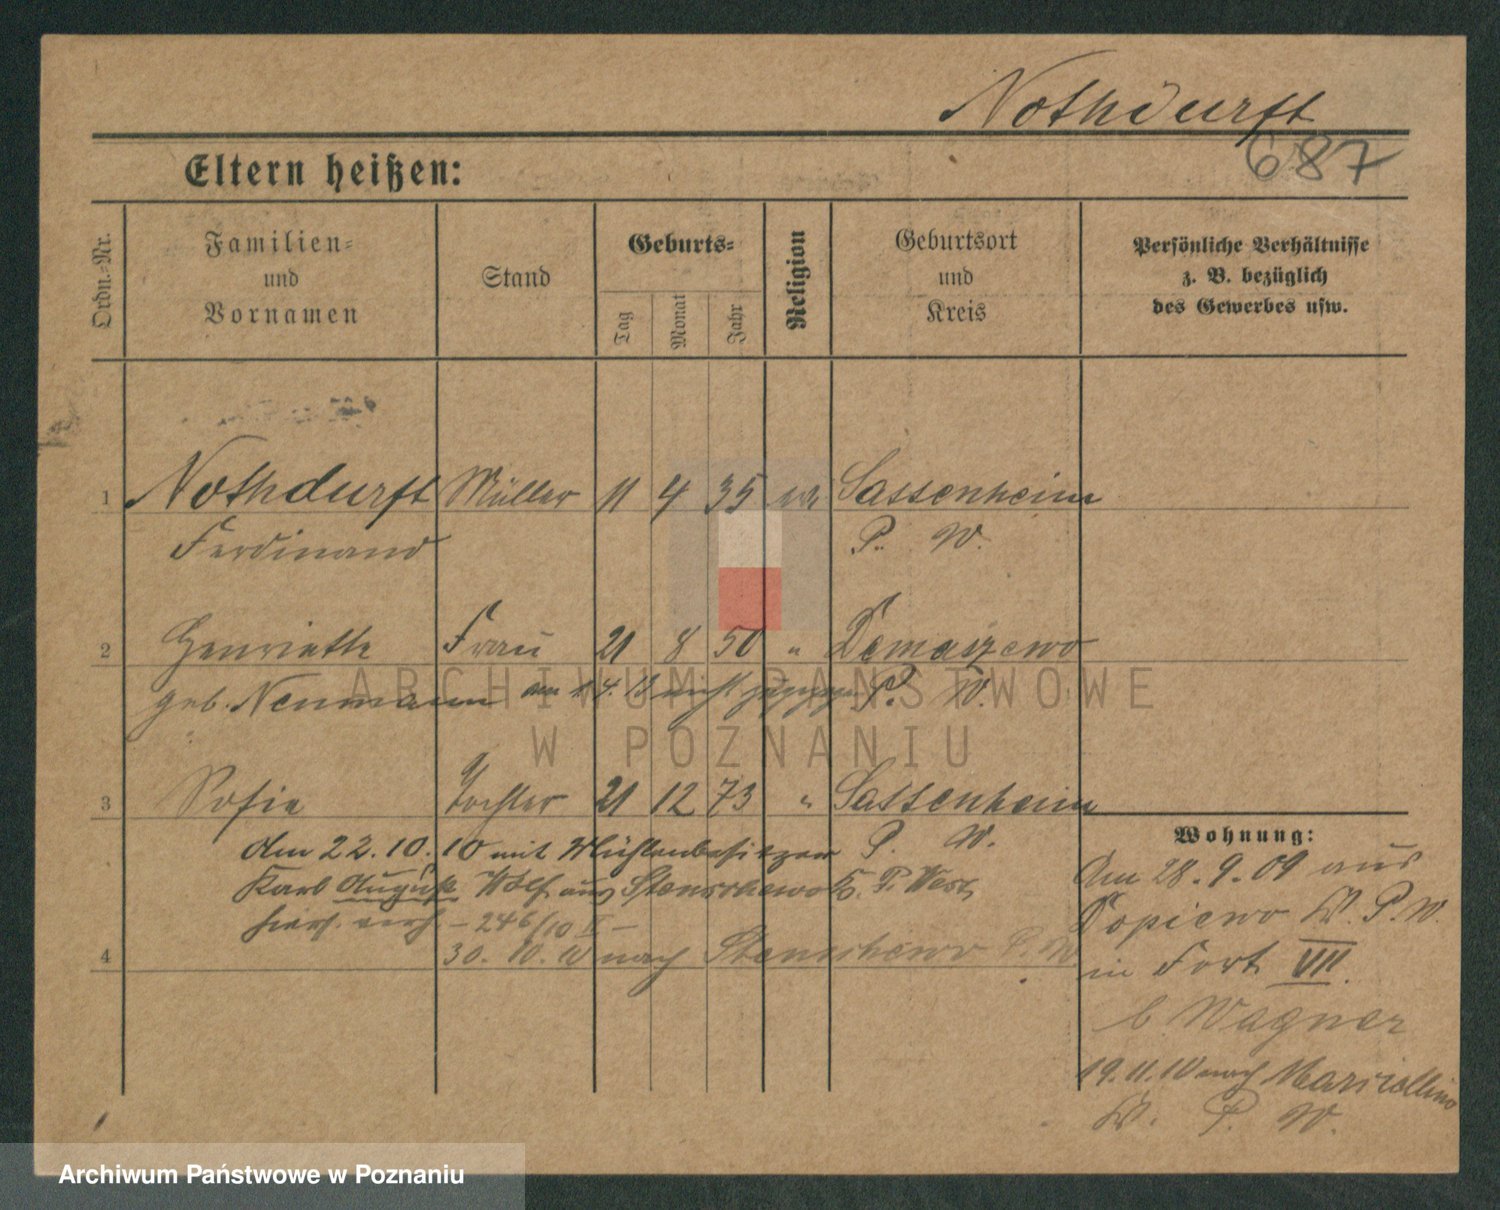 Nothdurft
687
Eltern heißen:
Ordn.-Nr.
Familien- und Vornamen
Stand
Geburts-
Tag
Monat
Jahr
Religion
Geburtsort und Kreis
Persönliche Verhältnisse z. B. bezüglich des Gewerbes usw.
1 Nothdurft Müller 11 4 35 Sassenheim
Ferdinand P. W.
2 Henriette Frau 21 8 50 " Domaszewo
geb. Neumann am 4. 13 nicht P. W.
3 Sofie Tochter 21 12 73 " Sassenheim
den 22.10.10 mit Mühlenbesitzer P. W.
Karl August Wolf aus Stenschewo P. West
hier verh. - 246/10 II -
4 30. 10. 10 nach Stenschewo P. W
Wohnung:
Am 28.9.09 aus
Dopiewo P. W.
in Fort VII.
b. Wagner
19.11.10 nach Marcellino
P. W.
ARCHIWUM PAŃSTWOWE
W POZNANIU
Archiwum Państwowe w Poznaniu